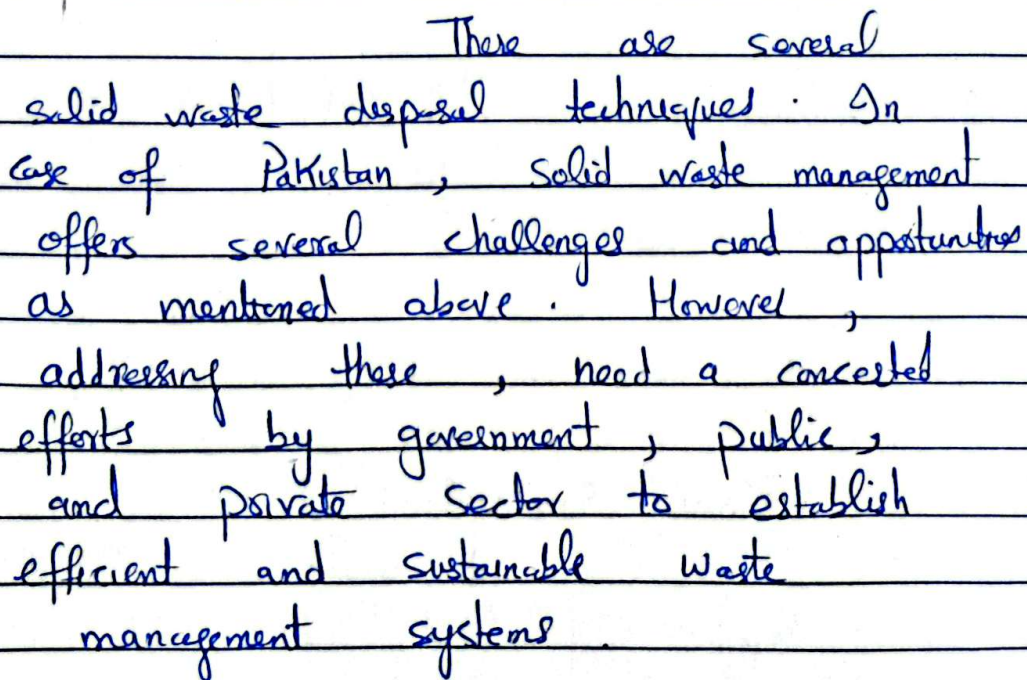 There are several
solid waste disposal techniques. In
case of Pakistan, solid waste management
offers several challenges and opportunities
as mentioned above. However,
addressing these, need a concerted
efforts by government, public,
and private sector to establish
efficient and sustainable waste
management systems.